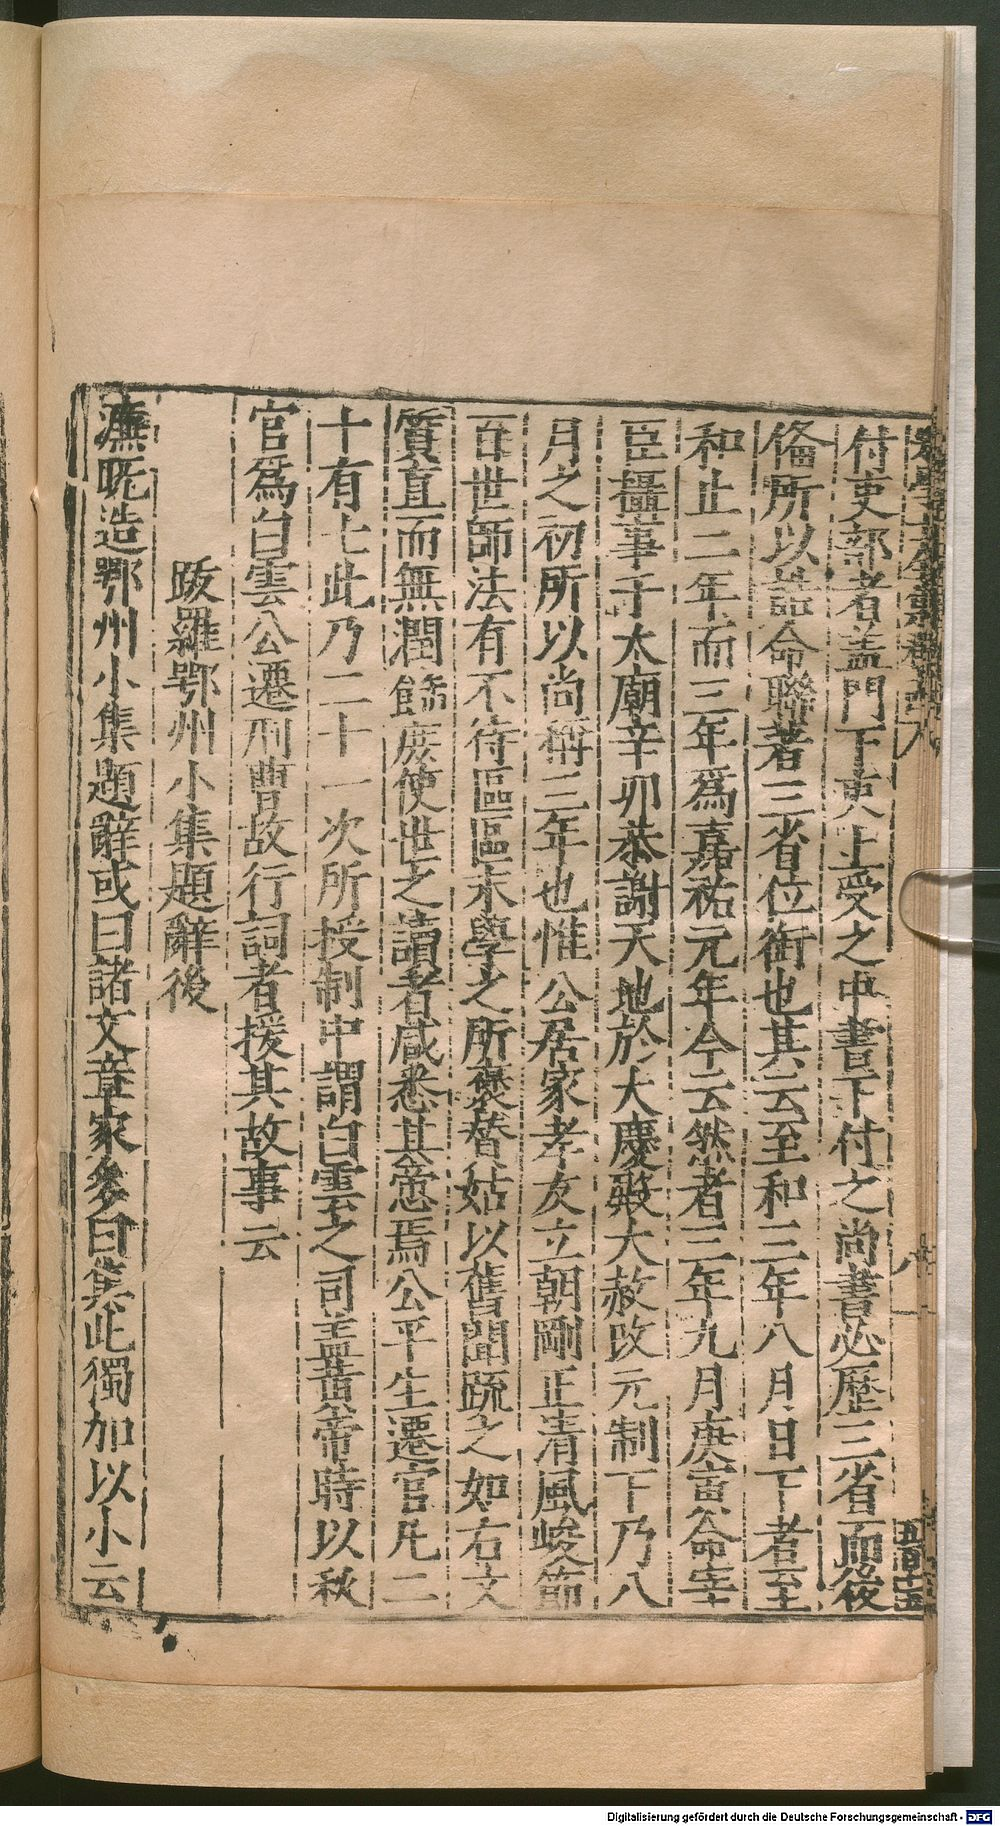 付吏部者蓋門下吏上受之中書下付之尚書必歷三省而愛後
備所以誥命聯著三省位銜也其云至和三年八月日下者至
和止二年而三年爲嘉祐元年今云然者三年九月庚寅命宰
臣攝事于太廟辛卯恭謝天地於大慶殿大赦改元制下乃八
月之初所以尚稱三年也惟公居家孝友立朝剛正清風峻節
百世師法有不待區區末學之所褒替姑以舊聞疏之如右文
質直而無潤餙庻使世之讀者咸悉其意焉公平生遷官凡二
十有七此乃二十一次所授制中謂白雲之司盖黄帝時以秋
官爲白雲公遷刑曹故行詞者援其故事云
跋羅鄂州小集題辭後
濂旣造鄂州小集題辭或曰諸文章家多曰集此獨加以小云
五百十五
Digitalisierung gefördert durch die Deutsche Forschungsgemeinschaft - DFG